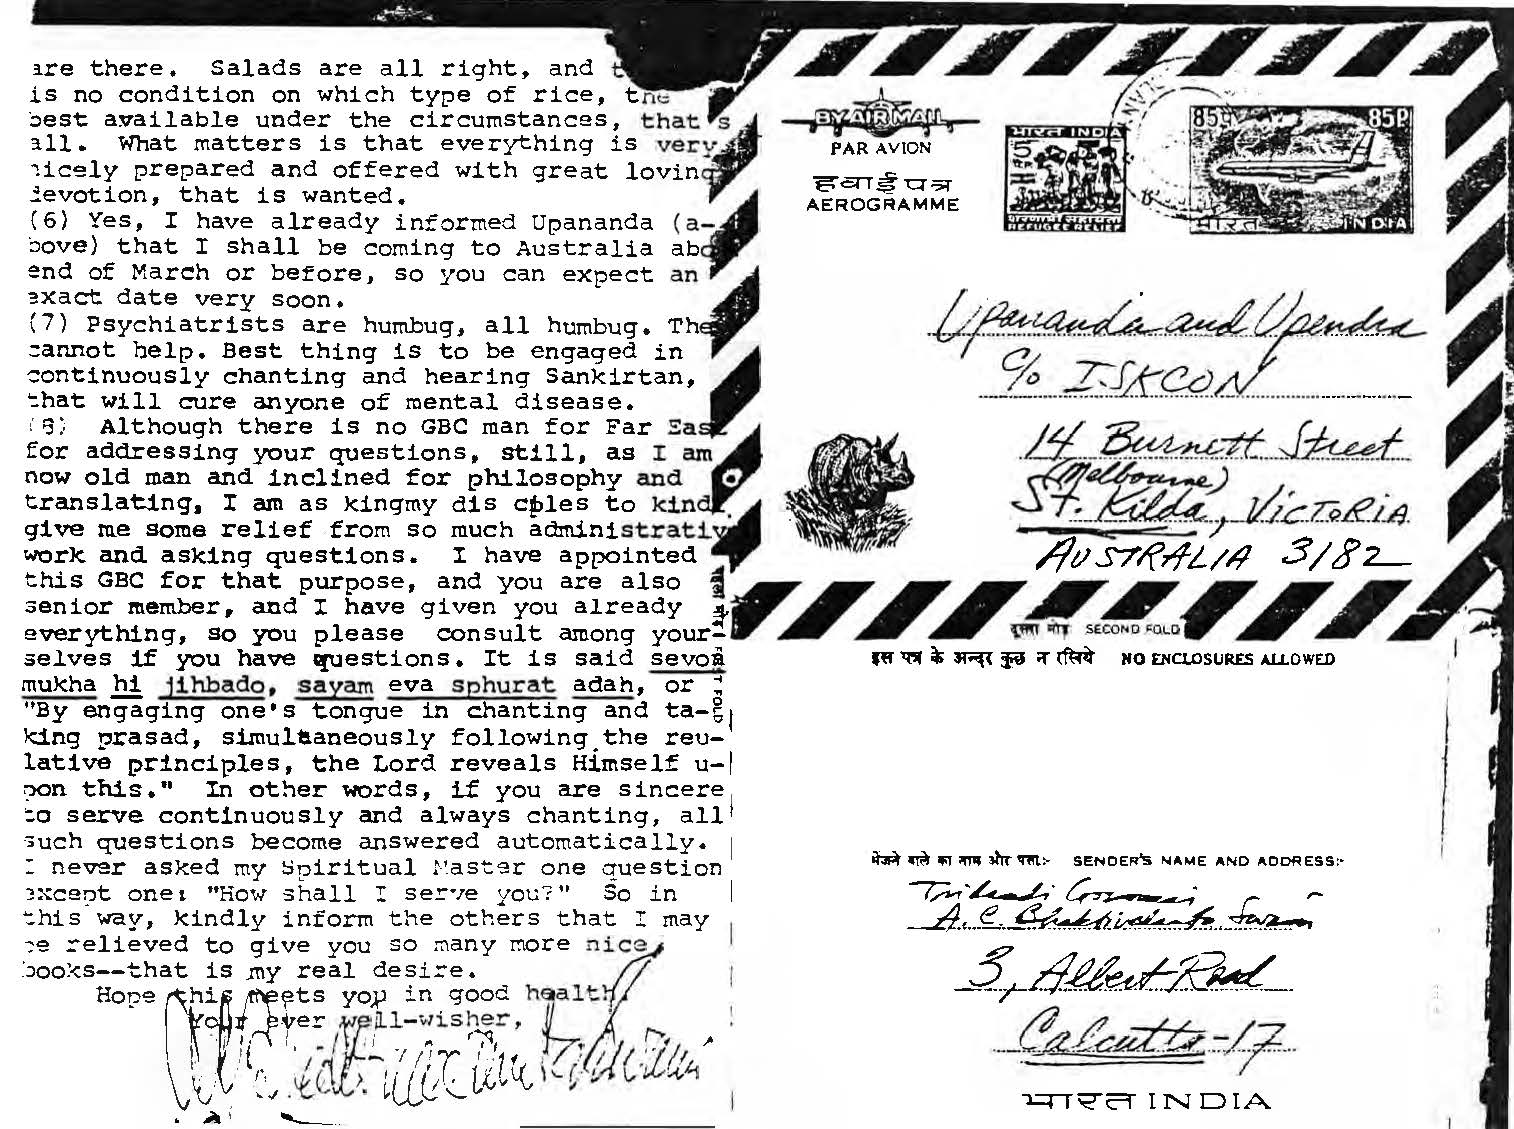 are there. Salads are all right, and
is no condition on which type of rice, the
best available under the circumstances, that's
all. What matters is that everything is very
nicely prepared and offered with great loving
devotion, that is wanted.
(6) Yes, I have already informed Upananda (a-
bove) that I shall be coming to Australia abo
end of March or before, so you can expect an
exact date very soon.
(7) Psychiatrists are humbug, all humbug. The
cannot help. Best thing is to be engaged in
continuously chanting and hearing Sankirtan,
that will cure anyone of mental disease.
(8) Although there is no GBC man for Far East
for addressing your questions, still, as I am
now old man and inclined for philosophy and
translating, I am as kingmy dis cples to kind
give me some relief from so much administrativ
work and asking questions. I have appointed
this GBC for that purpose, and you are also
senior member, and I have given you already
everything, so you please consult among your-
selves if you have questions. It is said sevon
mukha hi jihbado, sayam eva sphurat adah, or
"By engaging one's tongue in chanting and ta-
king prasad, simultaneously following the reu-
lative principles, the Lord reveals Himself u-
pon this." In other words, if you are sincere
to serve continuously and always chanting, all
such questions become answered automatically.
I never asked my Spiritual Master one question
except one: "How shall I serve you?" So in
this way, kindly inform the others that I may
be relieved to give you so many more nice
books--that is my real desire.
Hope this meets you in good health.
Your ever well-wisher,
BY AIR MAIL
PAR AVION
हवाई पत्र
AEROGRAMME
भारत INDIA
5
REFUGEE RELIEF
85प 85P
भारत INDIA
Upananda and Upendra
c/o ISKCON
14 Burnett Street
(Melbourne)
St. Kilda, VICTORIA
AUSTRALIA 3182
दूसरा मोड़ SECOND FOLD
FIRST FOLD
इस पत्र के अन्दर कुछ न रखिये NO ENCLOSURES ALLOWED
भेजने वाले का नाम और पता:- SENDER'S NAME AND ADDRESS:-
Tridandi Goswami
A. C. Bhaktivedanta Swami
3, Albert Road
Calcutta-17
भारत INDIA